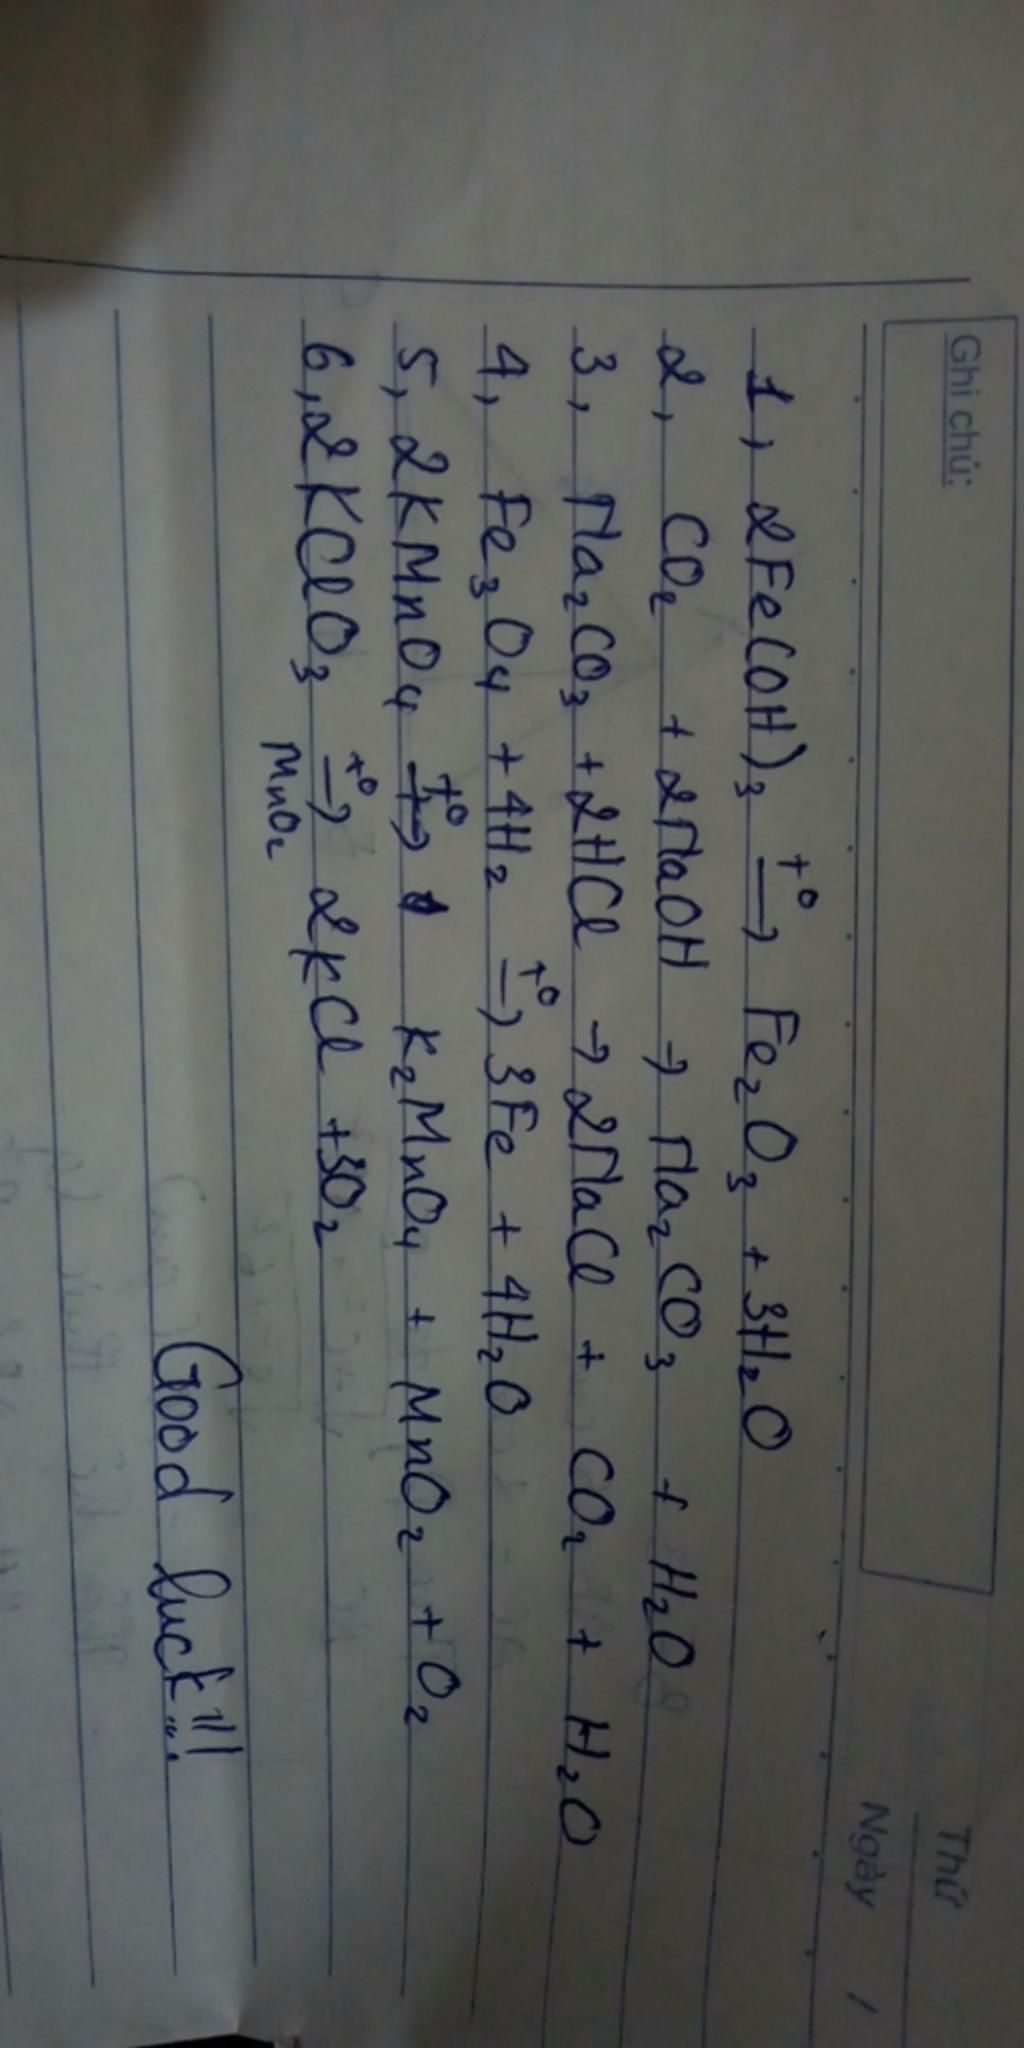 Ghi chú:
Thứ
Ngày /
1, 2Fe(OH)₃ —t°→ Fe₂O₃ + 3H₂O
2, CO₂ + 2NaOH → Na₂CO₃ + H₂O
3, Na₂CO₃ + 2HCl → 2NaCl + CO₂ + H₂O
4, Fe₃O₄ + 4H₂ —t°→ 3Fe + 4H₂O
5, 2KMnO₄ —t°→ K₂MnO₄ + MnO₂ + O₂
6, 2KClO₃ —t°→ 2KCl + 3O₂
MnO₂
Good luck!!!